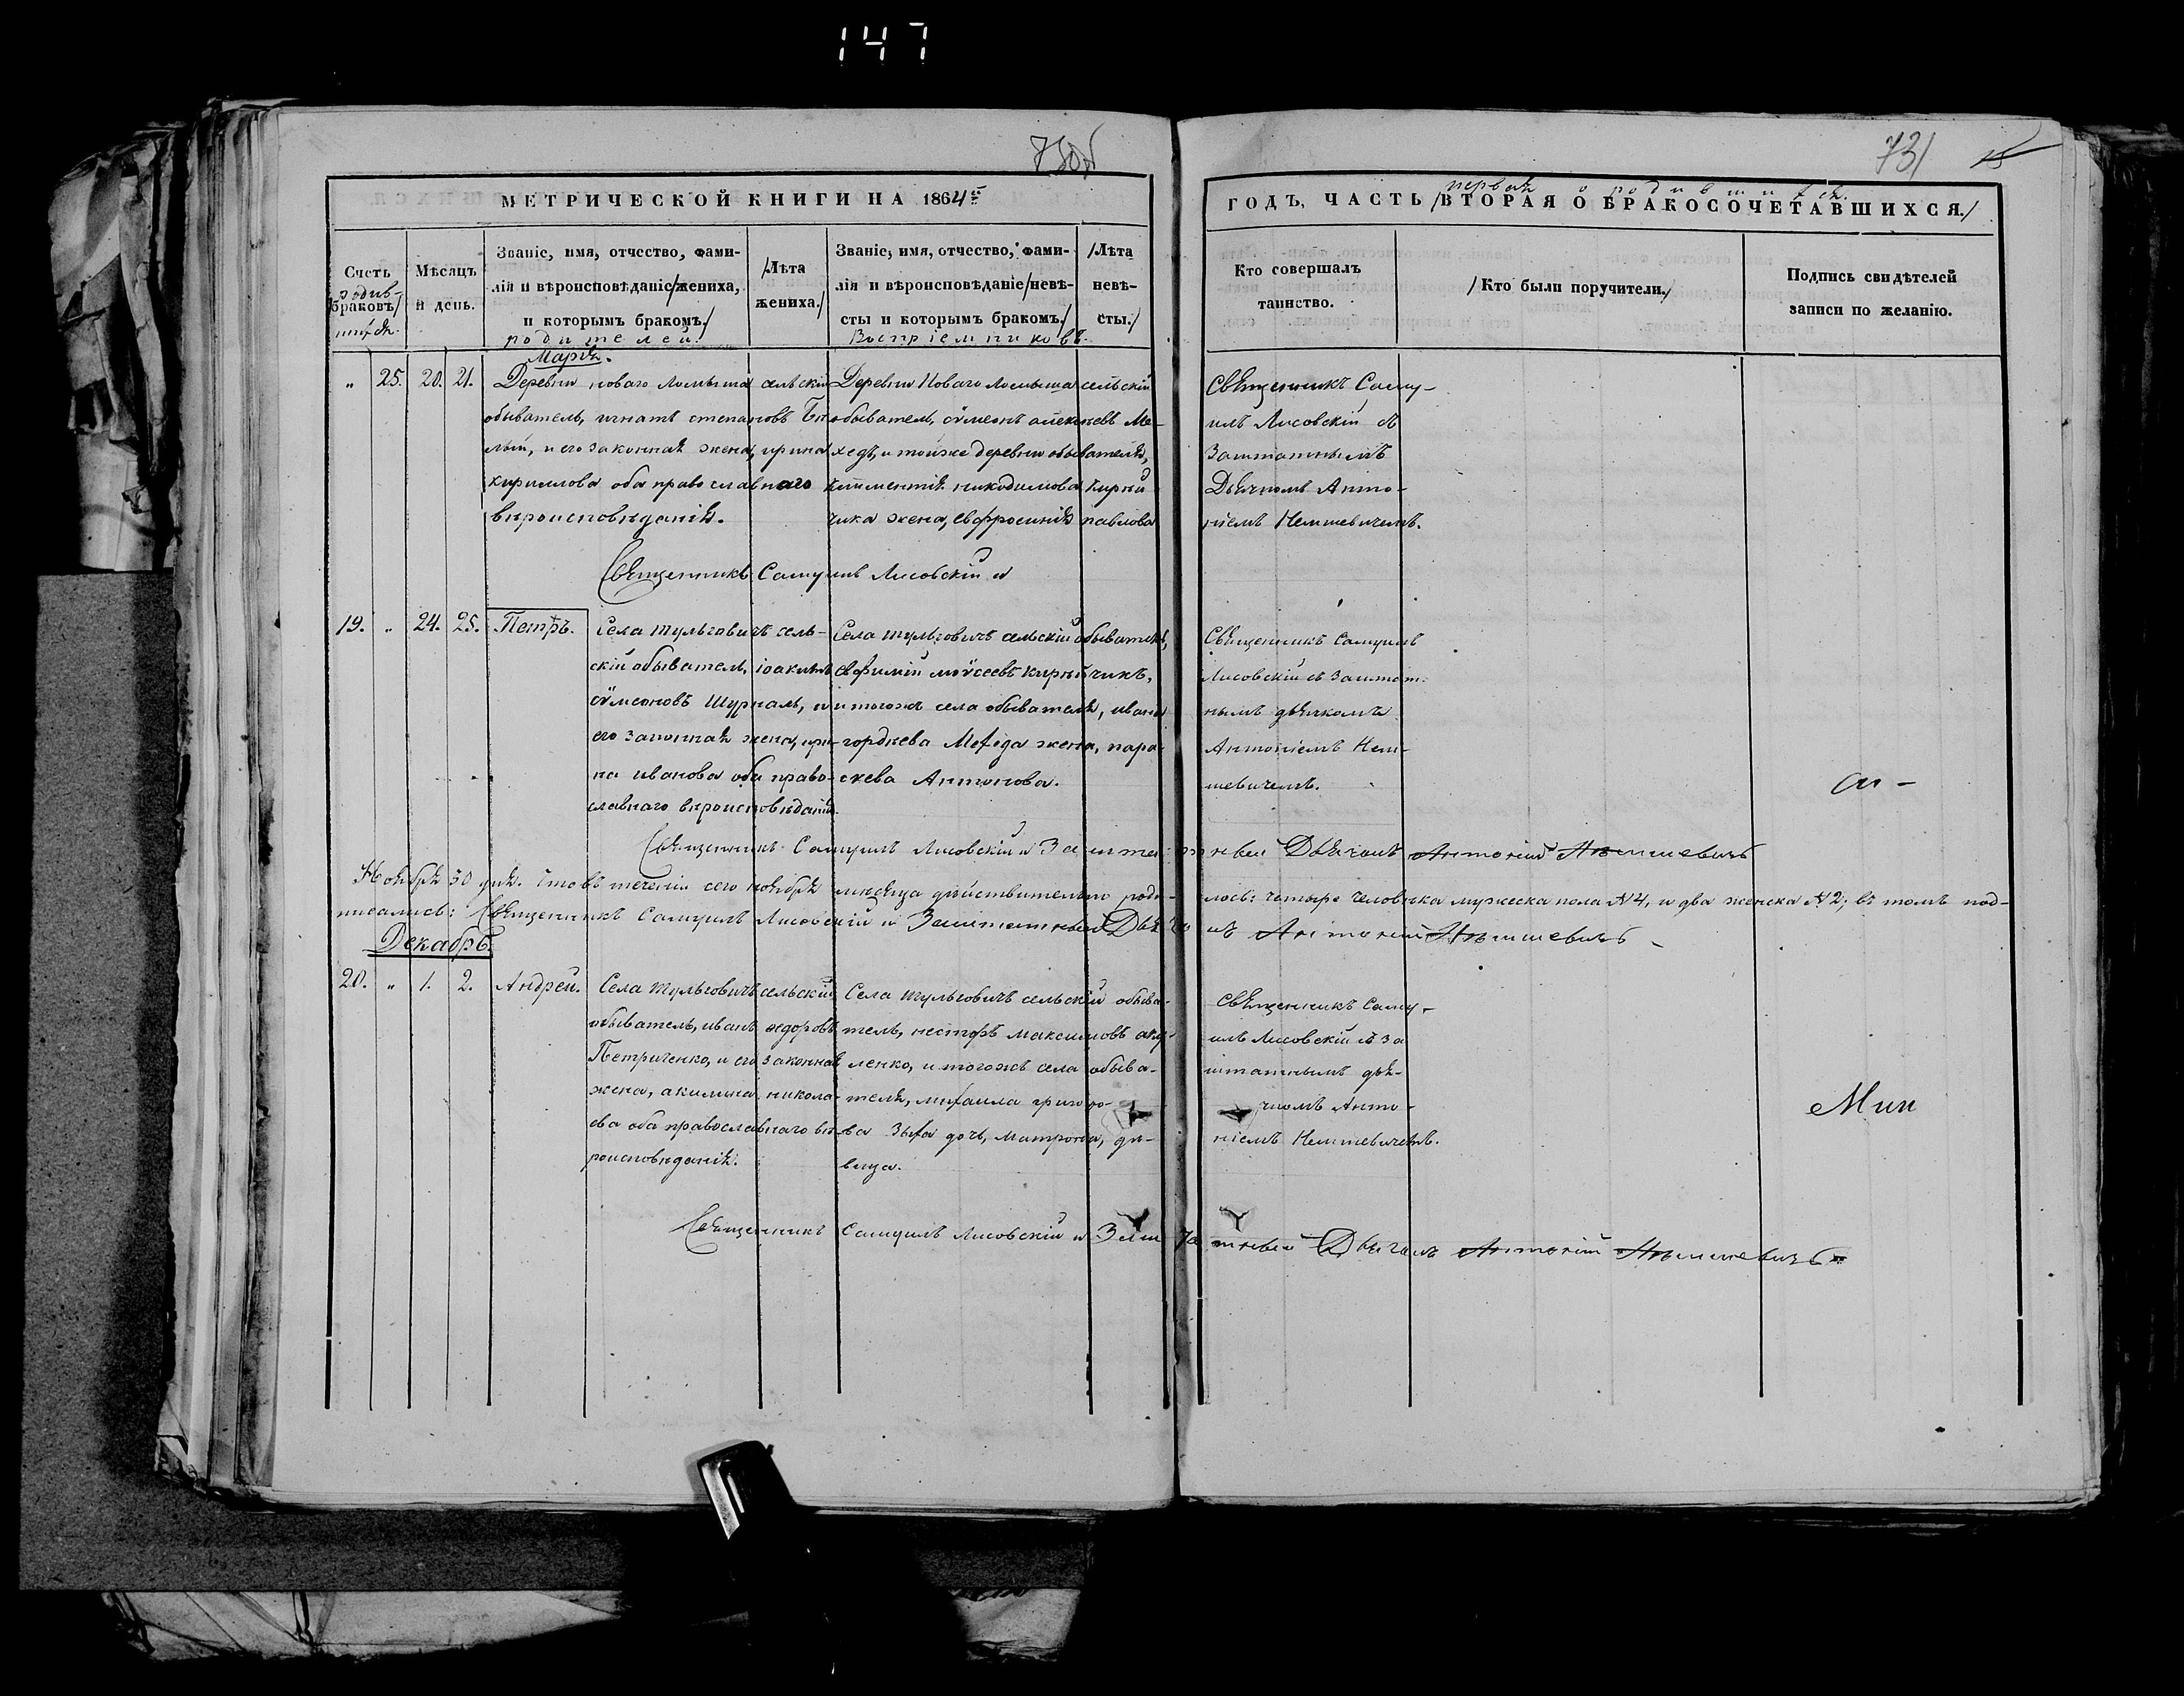 147
730об
731
МЕТРИЧЕСКОЙ КНИГИ НА 1864й
ГОДЪ, ЧАСТЬ /ВТОРАЯ О БРАКОСОЧЕТАВШИХСЯ./
первая о родившихся.
Счетъ
родив-
браковъ/
шихся.
Мѣсяцъ
и день.
Званіе, имя, отчество, фами-
лія и вѣроисповѣданіе/жениха,
и которымъ бракомъ./
родителей.
/Лѣта
жениха./
Званіе, имя, отчество, фами-
лія и вѣроисповѣданіе/невѣ-
сты и которымъ бракомъ./
Воспріемниковъ.
/Лѣта
невѣ-
сты./
Кто совершалъ
таинство.
/Кто были поручители./
Подпись свидѣтелей
записи по желанію.
" 25. 20. 21.
Марія.
Деревни новаго Ломыша сельскій
обыватель, игнатъ степановъ Бѣ
лый, и его законная жена, ирина
кириллова оба православнаго
вѣроисповѣданія.
Деревни Новаго Ломыша сельскій
обыватель, сѵмеонъ алексѣевъ Ме-
хедъ, и тойже деревни обывателя,
климентія никодимова кирѣй
чика жена, евфросинія павлова
Священникъ Саму-
илъ Лисовскій съ
Заштатнымъ
Дьячкомъ Анто-
ніемъ Немшевичемъ.
Священникъ Самуилъ Лисовскій и
19. " 24. 25. Петръ.
Села тульговичъ сель-
скій обыватель, іоакимъ
сѵмеоновъ Шурналь, и
его законная жена, ири-
на иванова оба право-
славнаго вѣроисповѣданія.
Села тульговичъ сельскій обыватель,
евфимій моѵсеевъ кирѣйчикъ,
и тогожъ села обывателя, ивана
гордѣева Мехеда жена, пара-
скева Антонова.
Священникъ Самуилъ
Лисовскій съ заштат-
нымъ дьячкомъ
Антоніемъ Нем-
шевичемъ.
Священникъ Самуилъ Лисовскій и Заштатный Дьячокъ Антоній Немшевичъ
Ноября 30 дня. Что въ теченіи сего ноября мѣсяца дѣйствительно роди- лось: четыре человѣка мужеска пола №4, и два женска №2, въ томъ под-
писались: Священникъ Самуилъ Лисовскій и Заштатный Дьячокъ Антоній Немшевичъ
Декабрь.
20. " 1. 2. Андрей.
Села тульговичъ сельскій
обыватель, иванъ ѳедоровъ
Петриченко, и его законная
жена, акилина никола-
ева оба православнаго вѣ-
роисповѣданія.
Села тульговичъ сельскій обыва-
тель, несторъ максимовъ аку-
ленко, и тогожъ села обыва-
теля, михаила григорь-
ева Зыха дочь, матрона, дѣ-
вица.
Священникъ Саму-
илъ Лисовскій съ за
штатнымъ дья-
чкомъ Анто-
ніемъ Немшевичемъ.
Священникъ Самуилъ Лисовскій и Заштатный Дьячокъ Антоній Немшевичъ